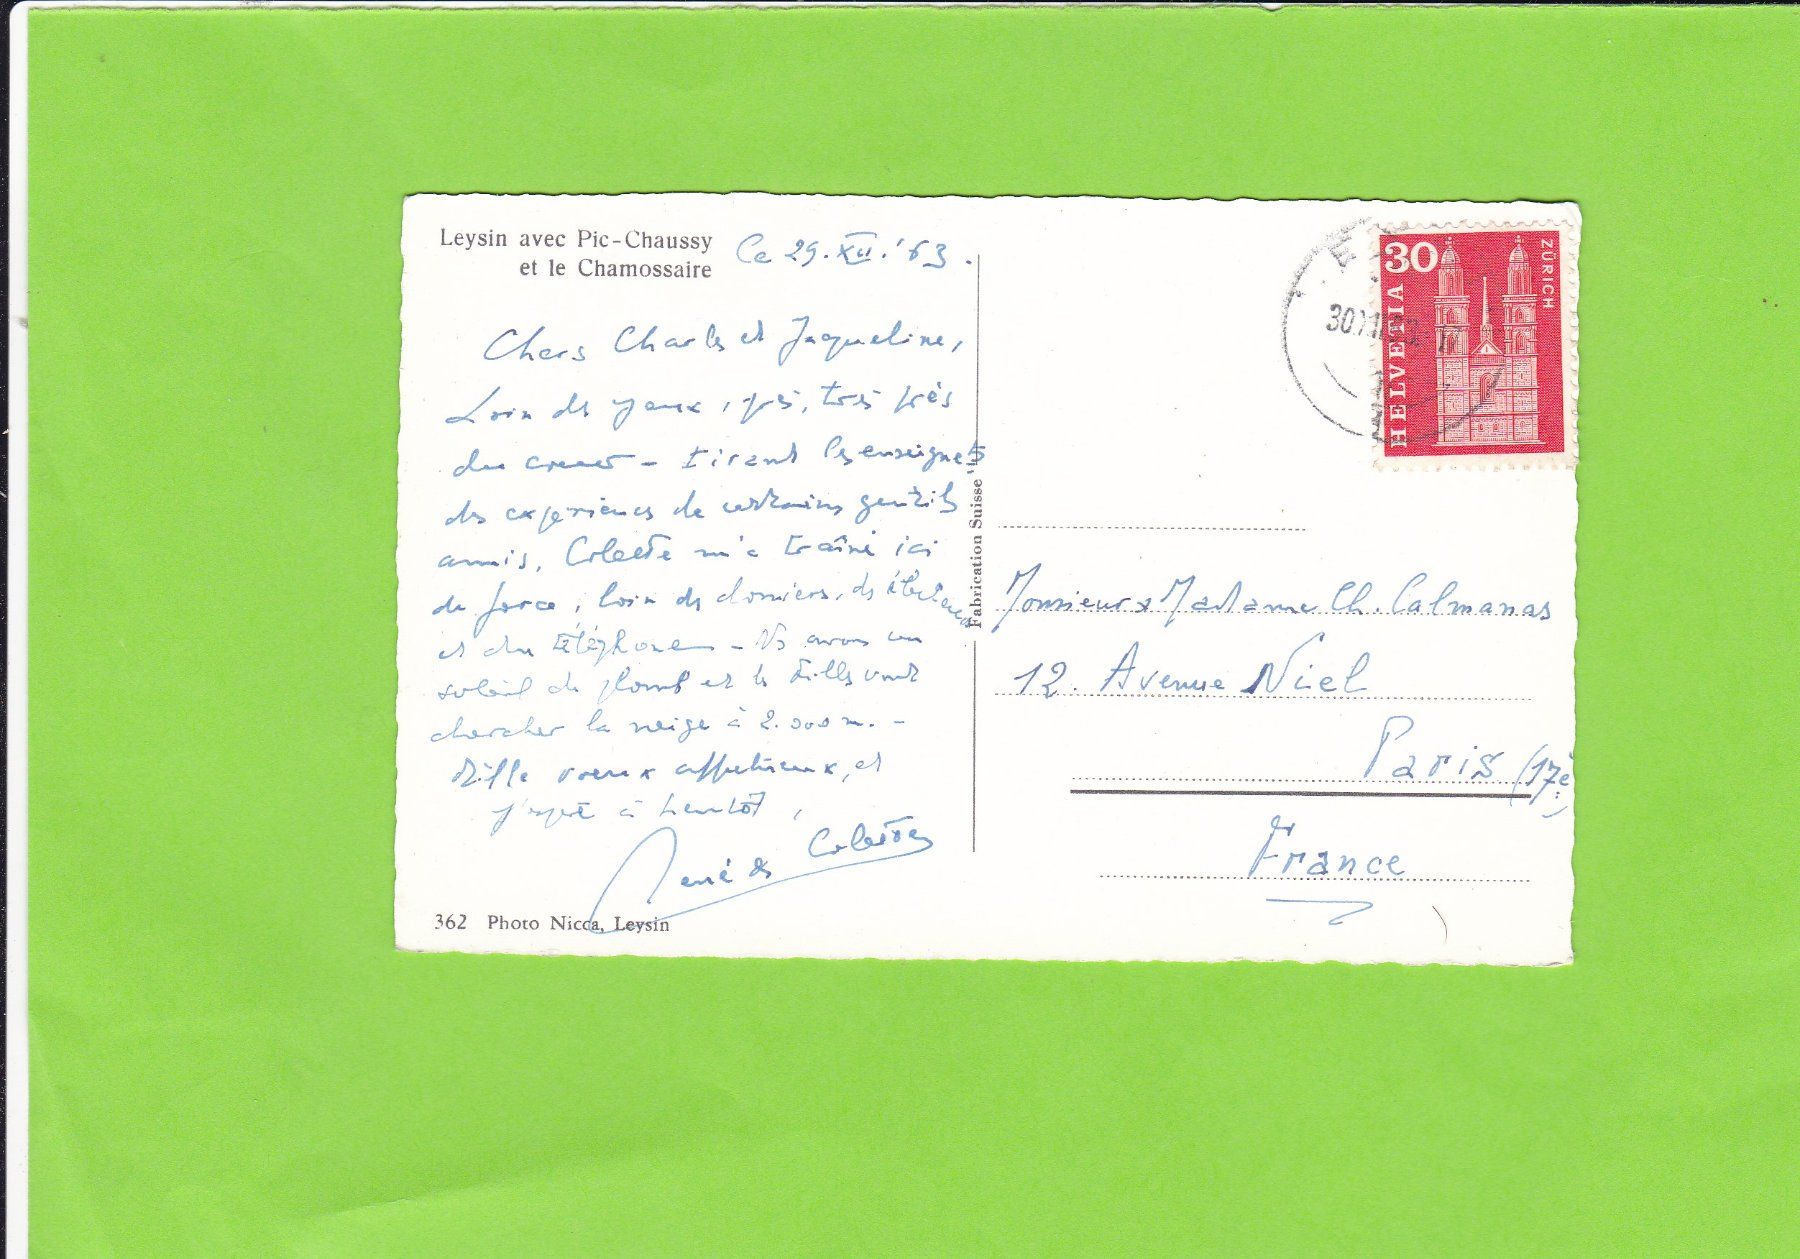 Leysin avec Pic-Chaussy
et le Chamossaire
Ce 29.XII.'63.
Chers Charles et Jaqueline,
Loin des yeux, très près
du coeur - tirant les enseignets
des expériences de certains gentils
amis, Colette m'a traîné ici
de force, loin des dossiers, des
et du téléphone - Ns avons un
soleil de plomb et les filles vont
chercher la neige à 2.000 m. -
Mille voeux affectueux, et
j'espère à bientôt,
René & Colette
362 Photo Nicca, Leysin
Fabrication Suisse
HELVETIA
30
ZÜRICH
Monsieur & Madame Ch. Calmanas
12. Avenue Niel
Paris (17è)
France